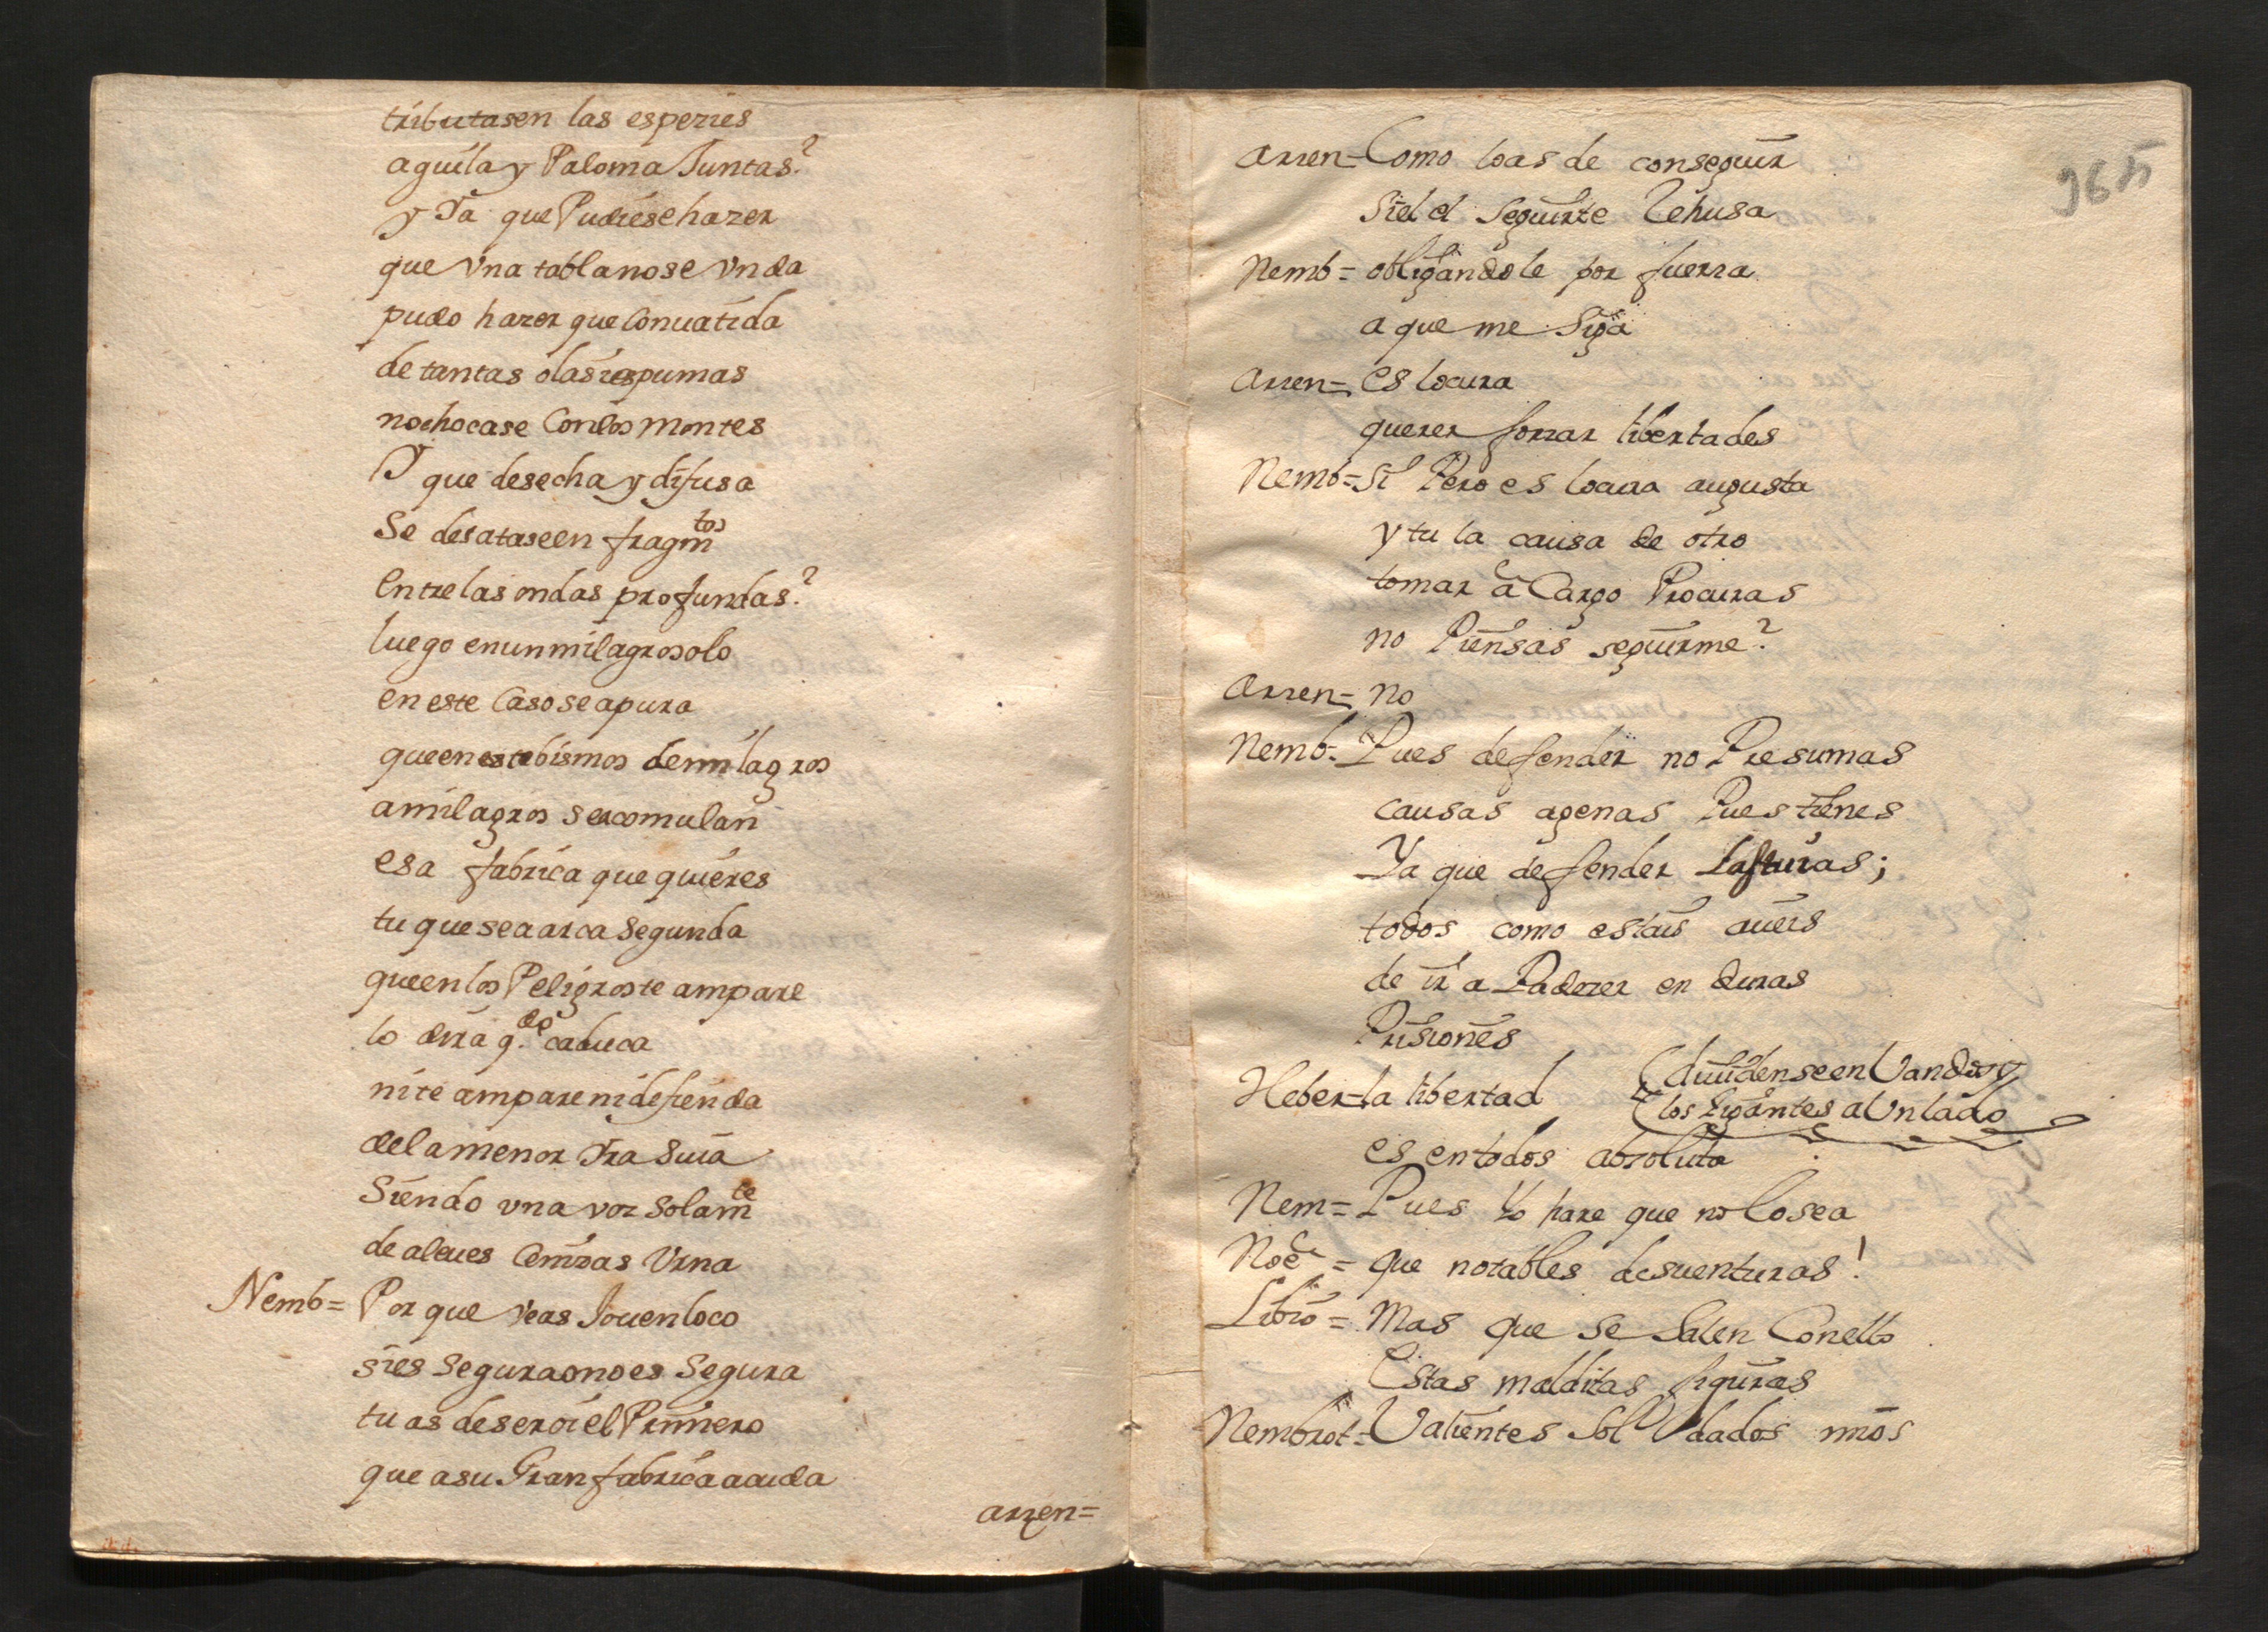 tributasen las espezies
aguila y Paloma Juntas?
y Ya que Pudiese hazer
que vna tabla no se vnda
pudo hazer que Conuatida
de tantas olas i espumas
no chocase Con los montes
Y que desecha y difusa
Se desatase en fragm.tos
Entre las ondas profundas?
luego en un milagro solo
en este Caso se apura
que en este bismos de milagros
a milagros se acomulan
esa fabrica que quieres
tu que sea arca segunda
que en los Peligros te ampare
lo dira q.do caduca
ni te ampare ni defienda
de la menor Yra Suia
Siendo vna voz Solam.te
de aleues Cenizas Vrna
Nemb= Por que veas Jouen loco
si es Segura o no es Segura
tu as de ser oi el Primero
que a su Gran fabrica acuda
arzen=
96
Arzen= Como loas de conseguir
Si el el Seguirte Rehusa
Nemb= obligandole por fuerza
a que me Siga
Arzen= es locura
querer forzar libertades
Nemb= Si Pero es locura augusta
y tu la causa de otro
tomar a Cargo Procuras
no Piensas seguirme?
Arzen= no
Nemb= Pues defender no Presumas
causas agenas Pues tienes
Ya que defender las tuias;
todos como estais aueis
de ir a Padezer en duras
Prisiones
Heber= la libertad
diuidense en Vandos y
los Gigantes a Vn lado
es en todos absoluta
Nem= Pues Yo hare que no lo sea
Noe= que notables desuenturas!
Libio= Mas que se Salen Con ello
Estas malditas figuras
Nembrot= Valientes Soldados mios